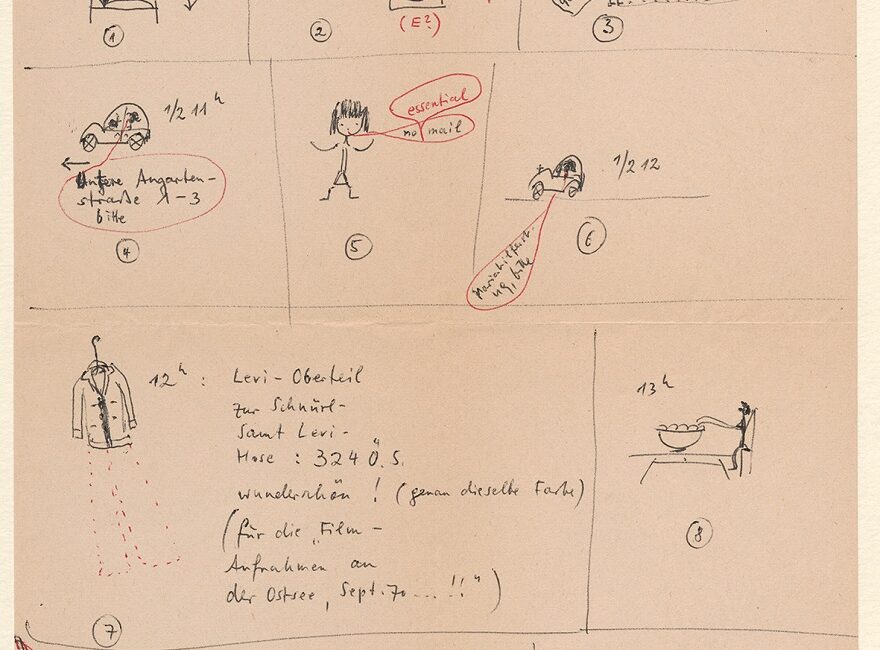 ①
②
(E?)
③
1/2 11 h
Untere Augarten-
straße 1-3
bitte
④
essential
no mail
⑤
1/2 12
bitte
⑥
12 h :
Levi-Oberteil
zur Schnürl-
Samt Levi-
Hose : 324 Ö.S.
wunderschön ! (genau dieselbe Farbe)
(für die „Film-
Aufnahmen an
der Ostsee, Sept. 70 ... !!“)
⑦
13 h
⑧